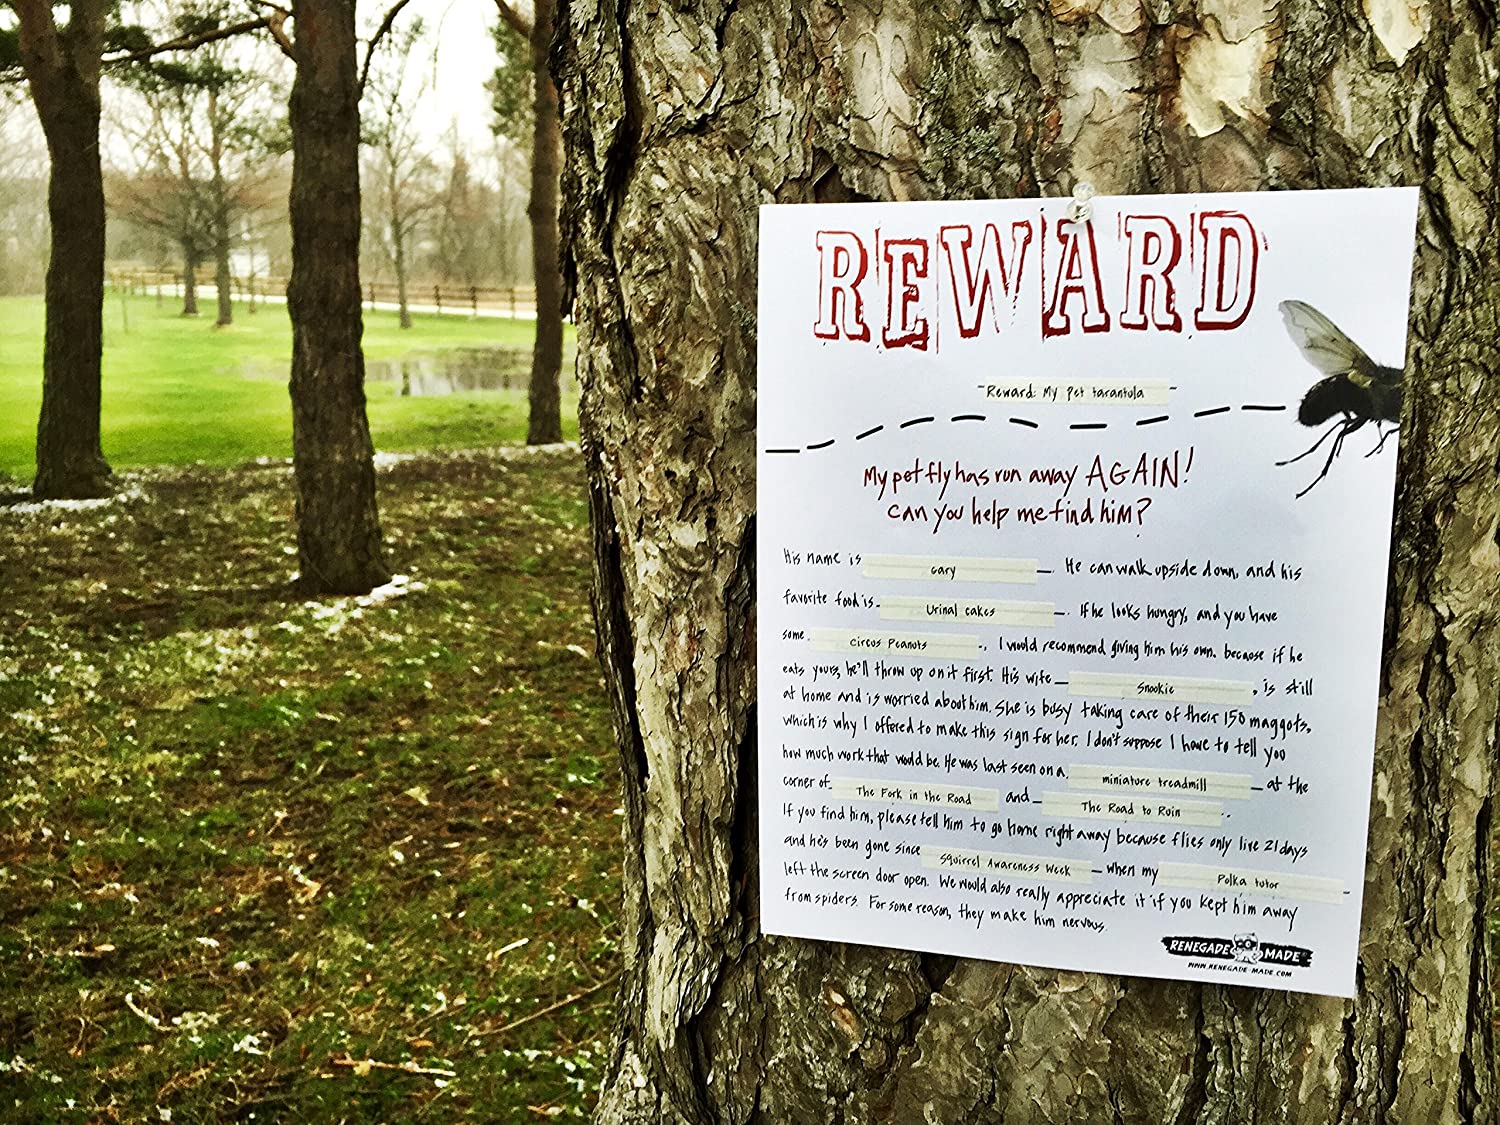 REWARD
Reward: My pet tarantula
My pet fly has run away AGAIN!
Can you help me find him?
His name is Gary. He can walk upside down, and his
favorite food is Urinal cakes. If he looks hungry, and you have
some Circus Peanuts, I would recommend giving him his own. because if he
eats yours, he'll throw up on it first. His wife Snookie, is still
at home and is worried about him. She is busy taking care of their 150 maggots,
which is why I offered to make this sign for her. I don't suppose I have to tell you
how much work that would be. He was last seen on a miniature treadmill at the
corner of The Fork in the Road and The Road to Ruin.
If you find him, please tell him to go home right away because flies only live 21 days
and he's been gone since Squirrel Awareness Week when my Polka tutor
left the screen door open. We would also really appreciate it if you kept him away
from spiders. For some reason, they make him nervous.
RENEGADE MADE
WWW.RENEGADE-MADE.COM